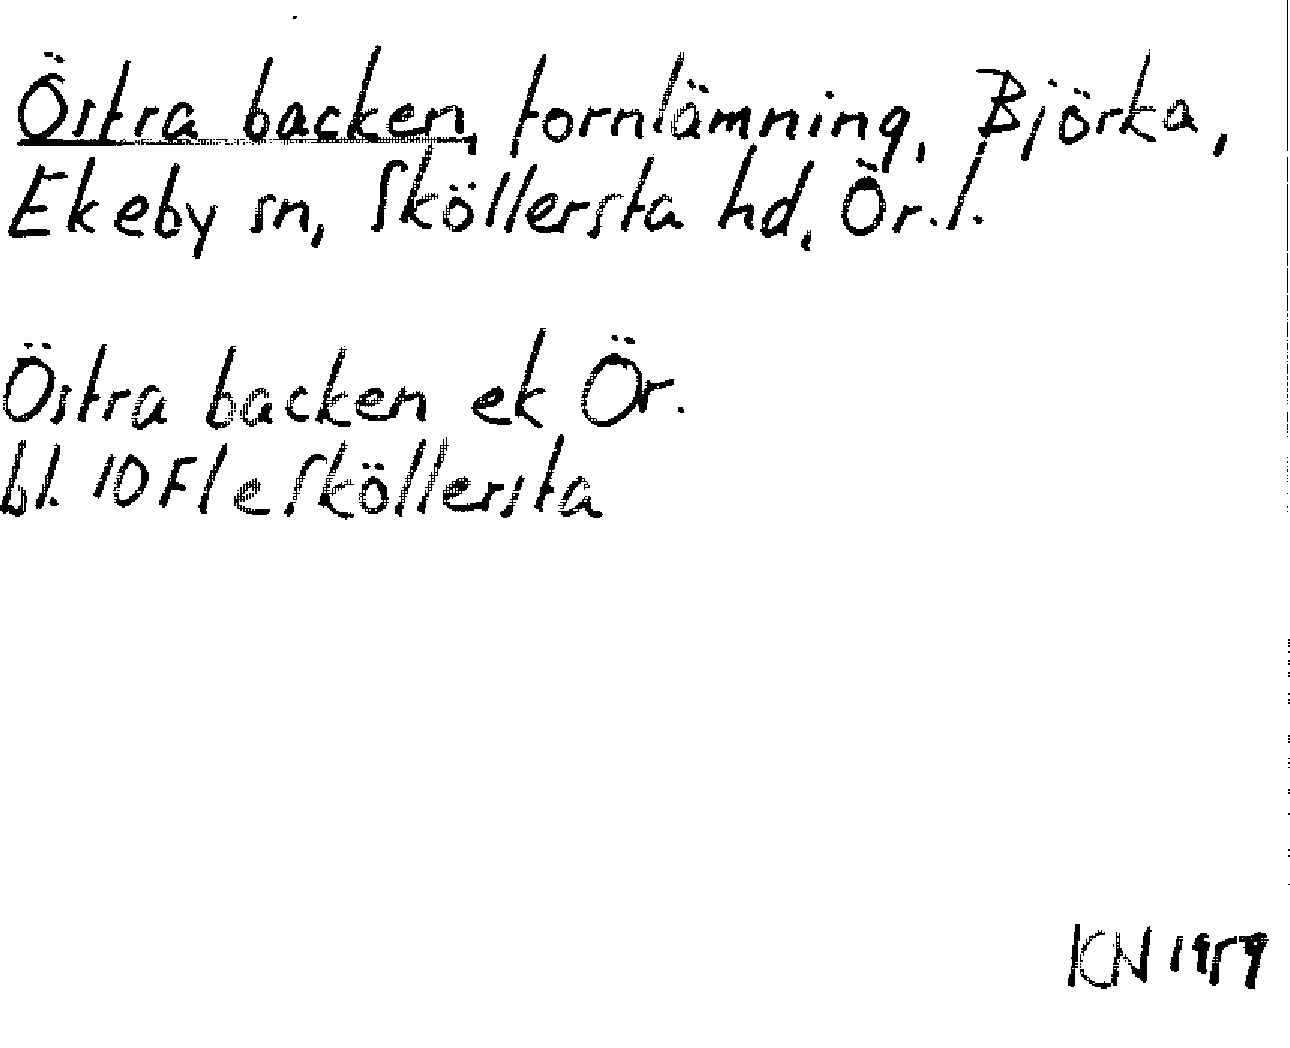 Östra backen, fornlämning, Björka,
Ekeby sn, Sköllersta hd, Ör. l.
Östra backen ek Ör.
bl. 10 F1e Sköllersta
KN 1959